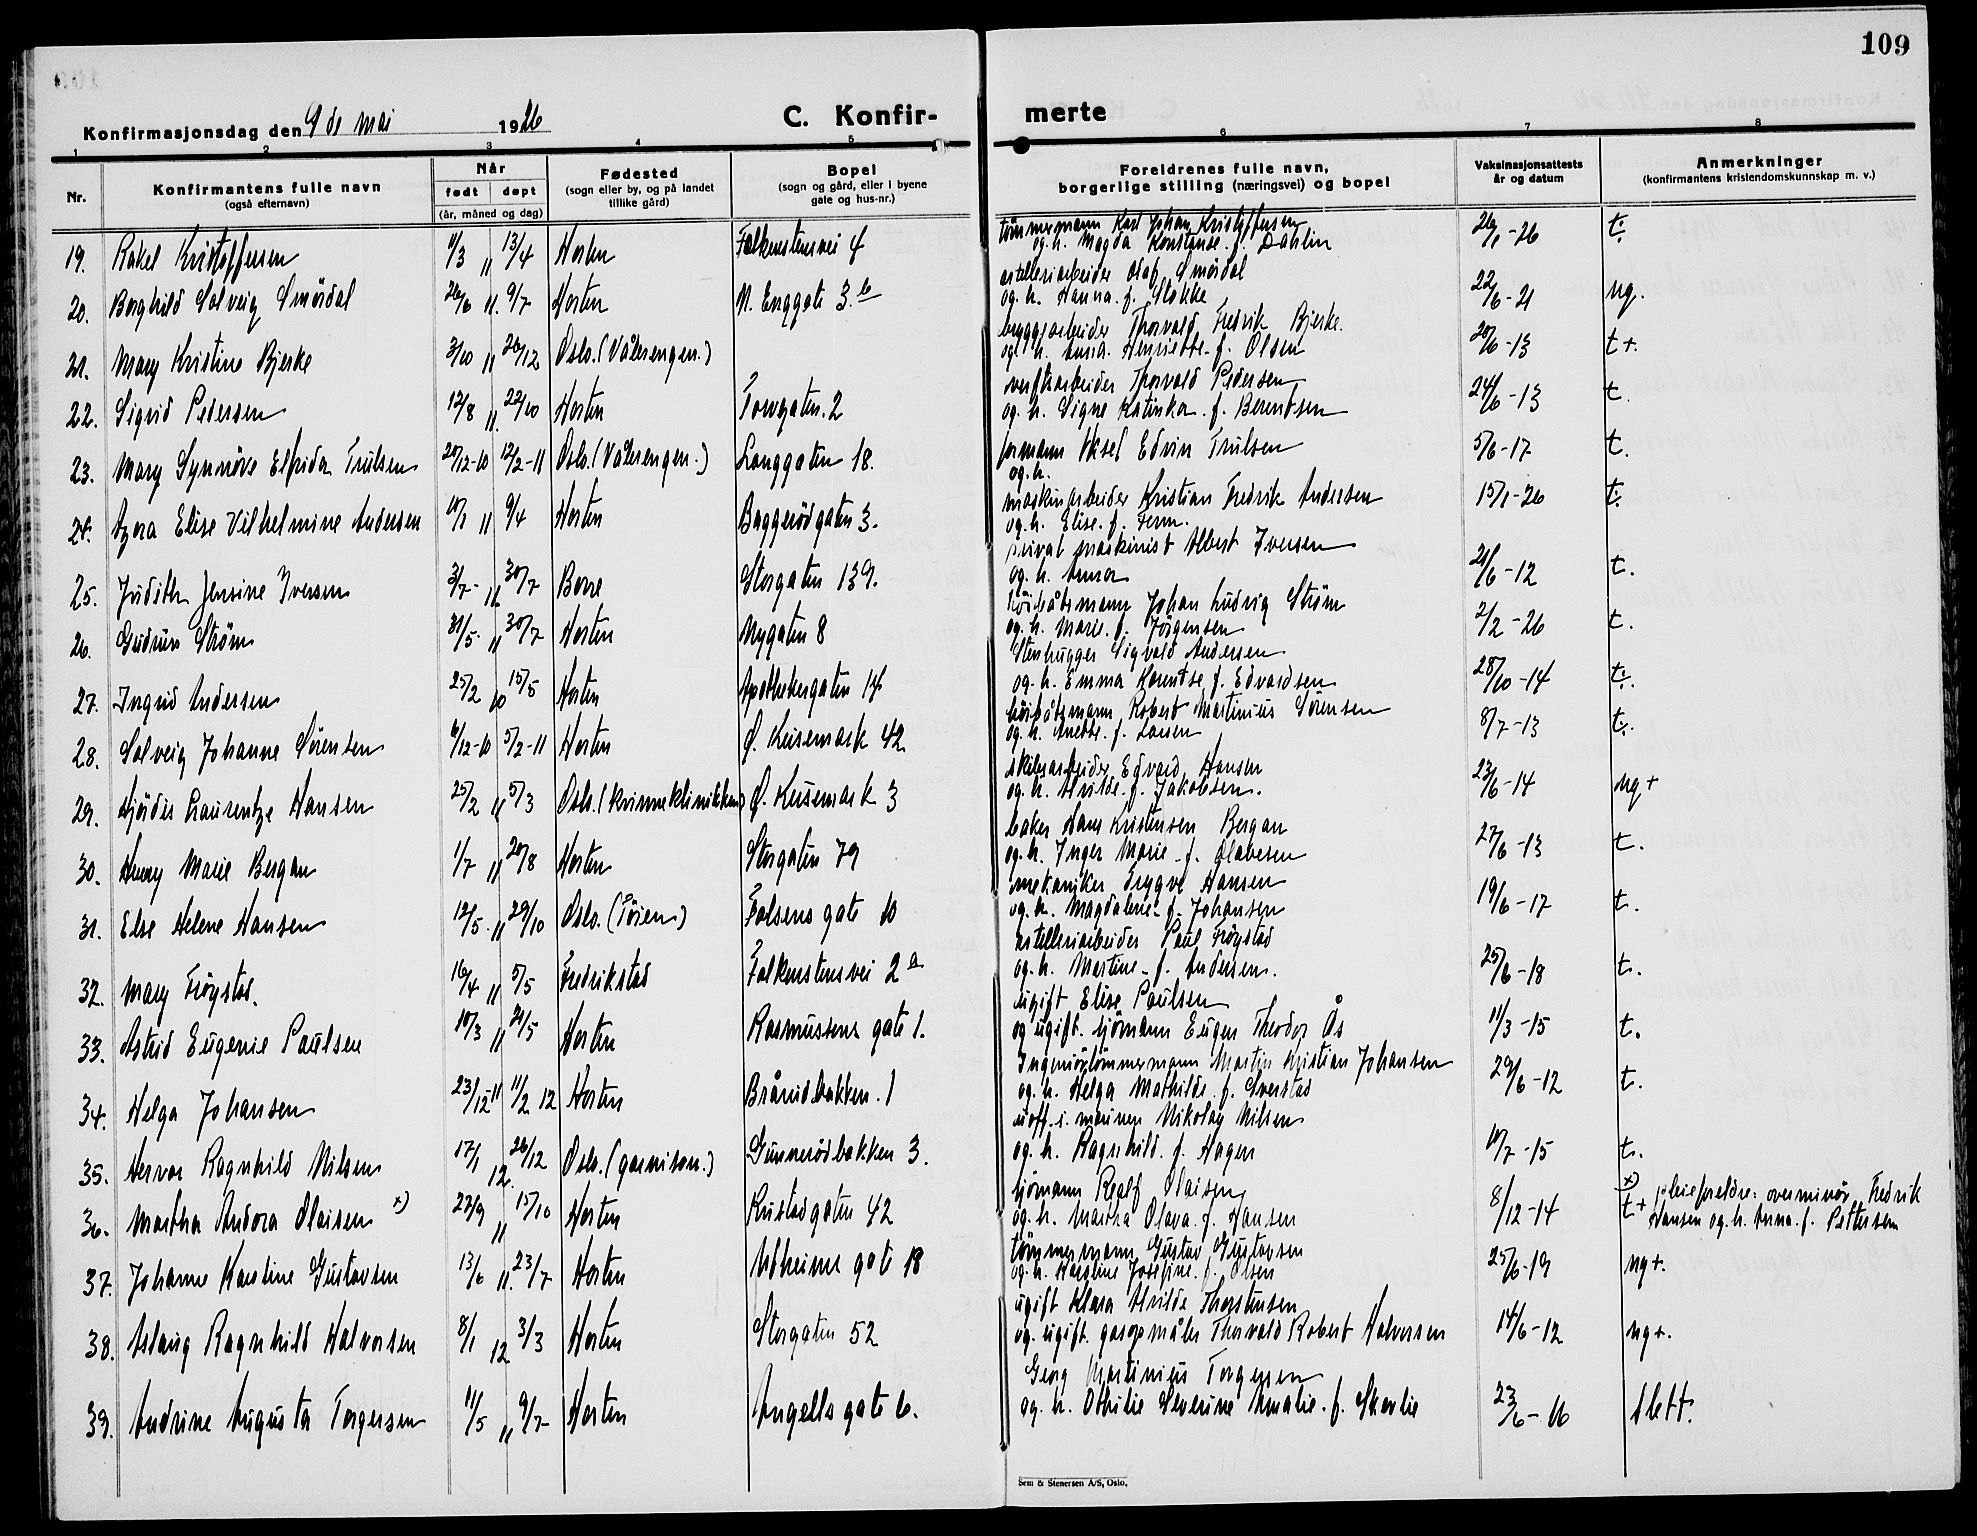 109
Konfirmasjonsdag den 9de mai 1926
C. Konfir-
merte
1 2 3 4 5 6 7 8
Nr.
Konfirmantens fulle navn
(også efternavn)
Når
født døpt
(år, måned og dag)
Fødested
(sogn eller by, og på landet
tillike gård)
Bopel
(sogn og gård, eller i byene
gate og hus-nr.)
Foreldrenes fulle navn,
borgerlige stilling (næringsvei) og bopel
Vaksinasjonsattests
år og datum
Anmerkninger
(konfirmantens kristendomskunnskap m. v.)
tömmermann Karl Johan Kristoffersen
19. Rakel Kristoffersen 11/3 11 13/4 Horten Falkenstensvei 4 og h. Magda Konstanse f. Dahlin 26/1-26 t.
artilleriarbeider Olaf Smördal
20. Borghild Solveig Smördal 26/6 11. 9/7 Horten N. Enggate 3.b og. h. Hanna. f. Stokke 22/6-21 ng.
bryggearbeider Thorvald Fredrik Bjerke.
21. Mary Kristine Bjerke 3/10 11 26/12 Oslo. (Vålerengen.) og h. Anna. Henriette. f. Olsen 20/6-13 t+.
verftsarbeider Thorvald Pedersen
22. Sigrid Pedersen 12/8 11. 22/10 Horten Torvgaten. 2 og. h. Signe Katinka. f. Berentsen 24/6-13 t.
formann Aksel Edvin Trulsen
23. Mary Synnöve Elfrida Trulsen 20/12-10 12/2-11 Oslo. (Vålerengen.) Langgaten 18. og. h. 5/6-17 t.
maskinarbeider Kristian Fredrik Andersen
24. Elise Vilhelmine Andersen 10/1 11 9/4 Horten Baggerödgaten 3. og. h. Elise. f. Ferm. 15/1-26 t.
privat maskinist Albert Iversen
25. Judith Jensine Iversen 3/7- 11 30/7 Borre Storgaten 139. og. h. Anna 21/6-12 t.
höibåtsmann Johan Ludvig Ström
26. Gudrun Ström 31/5. 11 30/7 Horten Nygaten 8 og. h. Marie. f. Jörgensen 2/2-26 t.
Stenhugger Sigvald Andersen
27. Ingrid Andersen 25/2 10 15/5 Horten Apothekergaten 14 og. h. Emma Laurentse f. Edvardsen 28/10-14 t.
höibåtsmann Robert Martinius Sörensen
28. Solveig Johanne Sörensen 6/12-10 5/2-11 Horten Ø. Keisemark 42 og. h. Anette. f. Larsen 8/7-13 t.
skiltarbeider Edvard Hansen
29. Hjördis Laurentze Hansen 25/2 11 5/3 Oslo. (kvinneklinikken) Ø. Keisemark 3 og. h. Alvilde. f. Jakobsen. 23/6-14 ng+
baker Hans Kristensen Bergan
30. Henny Marie Bergan 1/7 11 20/8 Horten Storgaten 79 og. h. Inger Marie. f. Olavesen 27/6-13 t.
mekaniker Trygve Hansen
31. Else Helene Hansen 12/5. 11 29/10 Oslo. (Töien) Falsens gate 10 og. h. Magdalene. f. Johansen 19/6-17 t.
artilleriarbeider Paul Fröystad
32. Mary Fröystad. 16/4 11 5/5 Fredrikstad Falkenstensvei 2a og. h. Martine. f. Andersen. 25/6-18 t.
ugift Elise Paulsen
33. Astrid Eugenie Paulsen 10/3 11 21/5 Horten Rasmussens gate 1. og ugift. sjömann Eugen Theodor Ås 11/3-15 t.
Ingeniörtömmermann Martin Kristian Johansen
34. Helga Johansen 23/12-11 11/2 12 Horten Bråruddbakken. 1 og. h. Helga Mathilde. f. Sverstad 29/6-12 t.
uoff. i. marinen Nikolay Nilsen
35. Hervor Ragnhild Nilsen 17/1 12. 26/12 Oslo. (garnison.) Gunnerödbakken 3. og. h. Ragnhild. f. Hagen 10/7-15 t.
sjömann Realf Olaisen x) pleieforeldre: overminör Fredrik
36. Martha Andora Olaisen x) 22/9 11 15/10 Horten Rustadgaten 42 og. h. Martha Olava. f. Hansen 8/12-14 t+ Hansen og. h. Anna. f. Pettersen
tömmermann Gustav Gustavsen
37. Johanne Karoline Gustavsen 13/6 11. 23/7 Horten Apheims gate 18 og. h. Karoline Josefine. f. Olsen 25/6-19 ng+.
ugift Klara Alvilde Thorstensen
38. Aslaug Ragnhild Halvorsen 8/1 12 3/3 Horten Storgaten 52 og. ugift. gasopmåler Thorvald Robert Halvorsen 14/6-12 ng+.
Georg Martinius Torgersen
39. Andrine Augusta Torgersen 11/5 11 9/7 Horten Angells gate 6. og. h. Othilie Severine Amalie. f. Skavlie 23/6-16 slett.
Sem & Stenersen A/S, Oslo.